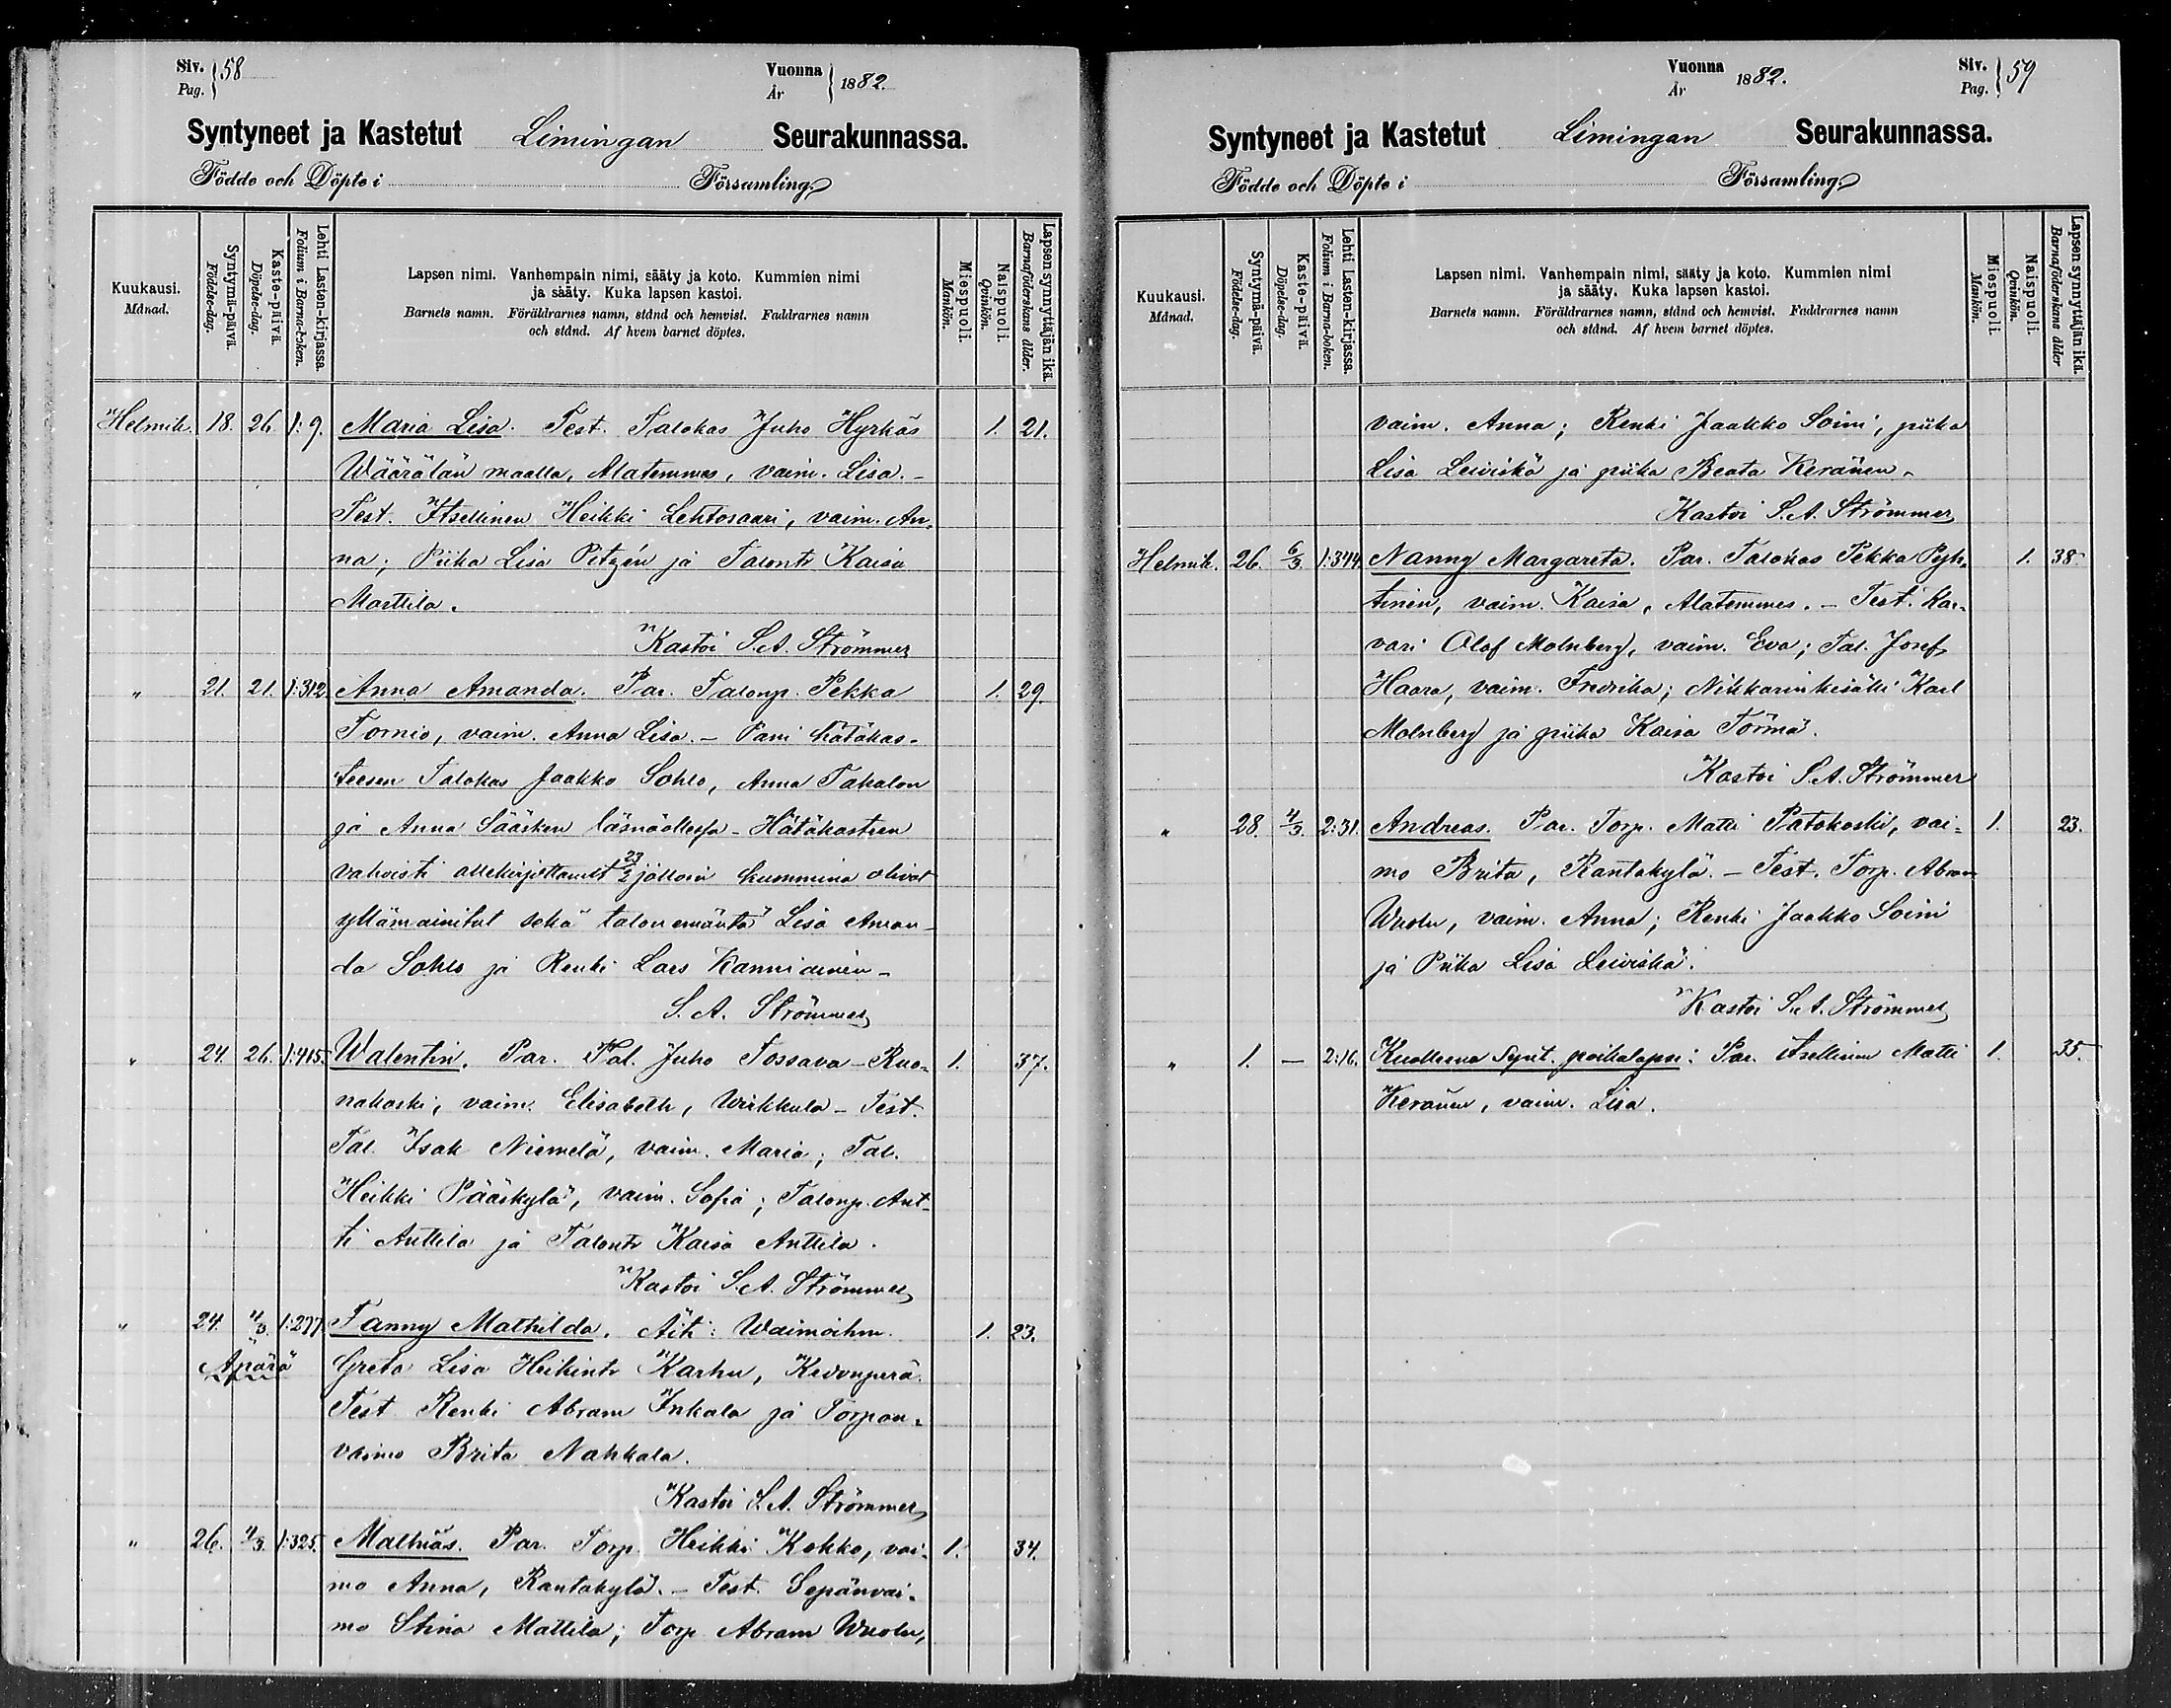 Siv. Pag. 58
Vuonna År 1882.
Syntyneet ja Kastetut Limingan Seurakunnassa.
Födde och Döpte i Församling.
Kuukausi. Månad.
Syntymä-päivä. Födelse-dag.
Kaste-päivä. Döpelse-dag.
Lehti Lasten-kirjassa. Folium i Barna-boken.
Lapsen nimi. Vanhempain nimi, sääty ja koto. Kummien nimi
ja sääty. Kuka lapsen kastoi.
Barnets namn. Föräldrarnes namn, stånd och hemvist. Faddrarnes namn
och stånd. Af hvem barnet döptes.
Miespuoli. Mankön.
Naispuoli. Qvinkön.
Lapsen synnyttäjän ikä. Barnaföderskans ålder.
Helmik. 18. 26. 1:9. Maria Lisa. Test. Talokas Juho Hyrkäs 1. 21.
Wäärälän maalla, Alatemmes, vaim. Lisa. -
Test. Itsellinen Heikki Lehtosaari, vaim. An-
na; Piika Lisa Pitzén ja Talontr Kaisa
Marttila.
Kastoi S.A. Strömmer
" 21. 21. 1:312. Anna Amanda. Par. Talonp. Pekka 1. 29.
Tornio, vaim. Anna Lisa. - Pani hätäkas-
teesen Talokas Jaakko Sohlo, Anna Takalon
ja Anna Säästen läsnäollessa - Hätäkasteen
vahvisti allekirjoittanut 23/2 jolloin kummina olivat
yllämainitut sekä talon emäntä Lisa Aman-
da Sohlo ja Renki Lars Kanniainen -
S. A. Strömmer
" 24. 26. 1:415. Walentin. Par. Tal. Juho Tossava-Ruo- 1. 37.
nakoski, vaim. Elisabeth, Wirkkula - Test.
Tal. Isak Niemelä, vaim. Maria; Tal.
Heikki Pääskylä, vaim. Sofia; Talonp. Ant-
ti Anttila ja Talontr Kaisa Anttila.
Kastoi S.A. Strömmer
" 24. 4/3. 1:277 Fanny Mathilda. Äiti: Waimoihm. 1. 23.
Äpärä Greta Lisa Heikintr Karhu, Kedonperä.
Test Renki Abram Inkala ja Torpan-
vaimo Brita Nahkala.
Kastoi S.A. Strömmer
" 26. 4/3. 1:325. Mathias. Par. Torp. Heikki Kokko, vai- 1. 34.
mo Anna, Rantakylä. - Test. Sepänvai-
mo Stina Mattila; Torp Abram Wuolu,
Vuonna År 1882.
Siv. Pag. 59
Syntyneet ja Kastetut Limingan Seurakunnassa.
Födde och Döpte i Församling.
Kuukausi. Månad.
Syntymä-päivä. Födelse-dag.
Kaste-päivä. Döpelse-dag.
Lehti Lasten-kirjassa. Folium i Barna-boken.
Lapsen nimi. Vanhempain nimi, sääty ja koto. Kummien nimi
ja sääty. Kuka lapsen kastoi.
Barnets namn. Föräldrarnes namn, stånd och hemvist. Faddrarnes namn
och stånd. Af hvem barnet döptes.
Miespuoli. Mankön.
Naispuoli. Qvinkön.
Lapsen synnyttäjän ikä. Barnaföderskans ålder
vaim. Anna; Renki Jaakko Soini, piika
Lisa Leiviskä ja piika Beata Keränen.
Kastoi S.A. Strömmer
Helmik. 26. 6/3. 1:344. Nanny Margareta. Par. Talokas Pekka Pyh- 1. 38.
tinen, vaim. Kaisa, Alatemmes. - Test. Kar-
vari Olof Molnberg, vaim. Eva; Tal. Josef
Haara, vaim. Fredrika; Nikkarinkisälli Karl
Molnberg ja piika Kaisa Törmä.
Kastoi S.A. Strömmer
" 28. 4/3. 2:31. Andreas. Par. Torp. Matti Patokoski, vai- 1. 23.
mo Brita, Rantakylä. - Test. Torp. Abram
Wuolu, vaim. Anna; Renki Jaakko Soini
ja Piika Lisa Leiviskä.
Kastoi S.A. Strömmer
" 1. - 2:16. Kuolleena Synt. poikalapsi: Par. Itsellinen Matti 1. 35.
Keränen, vaim. Lisa.